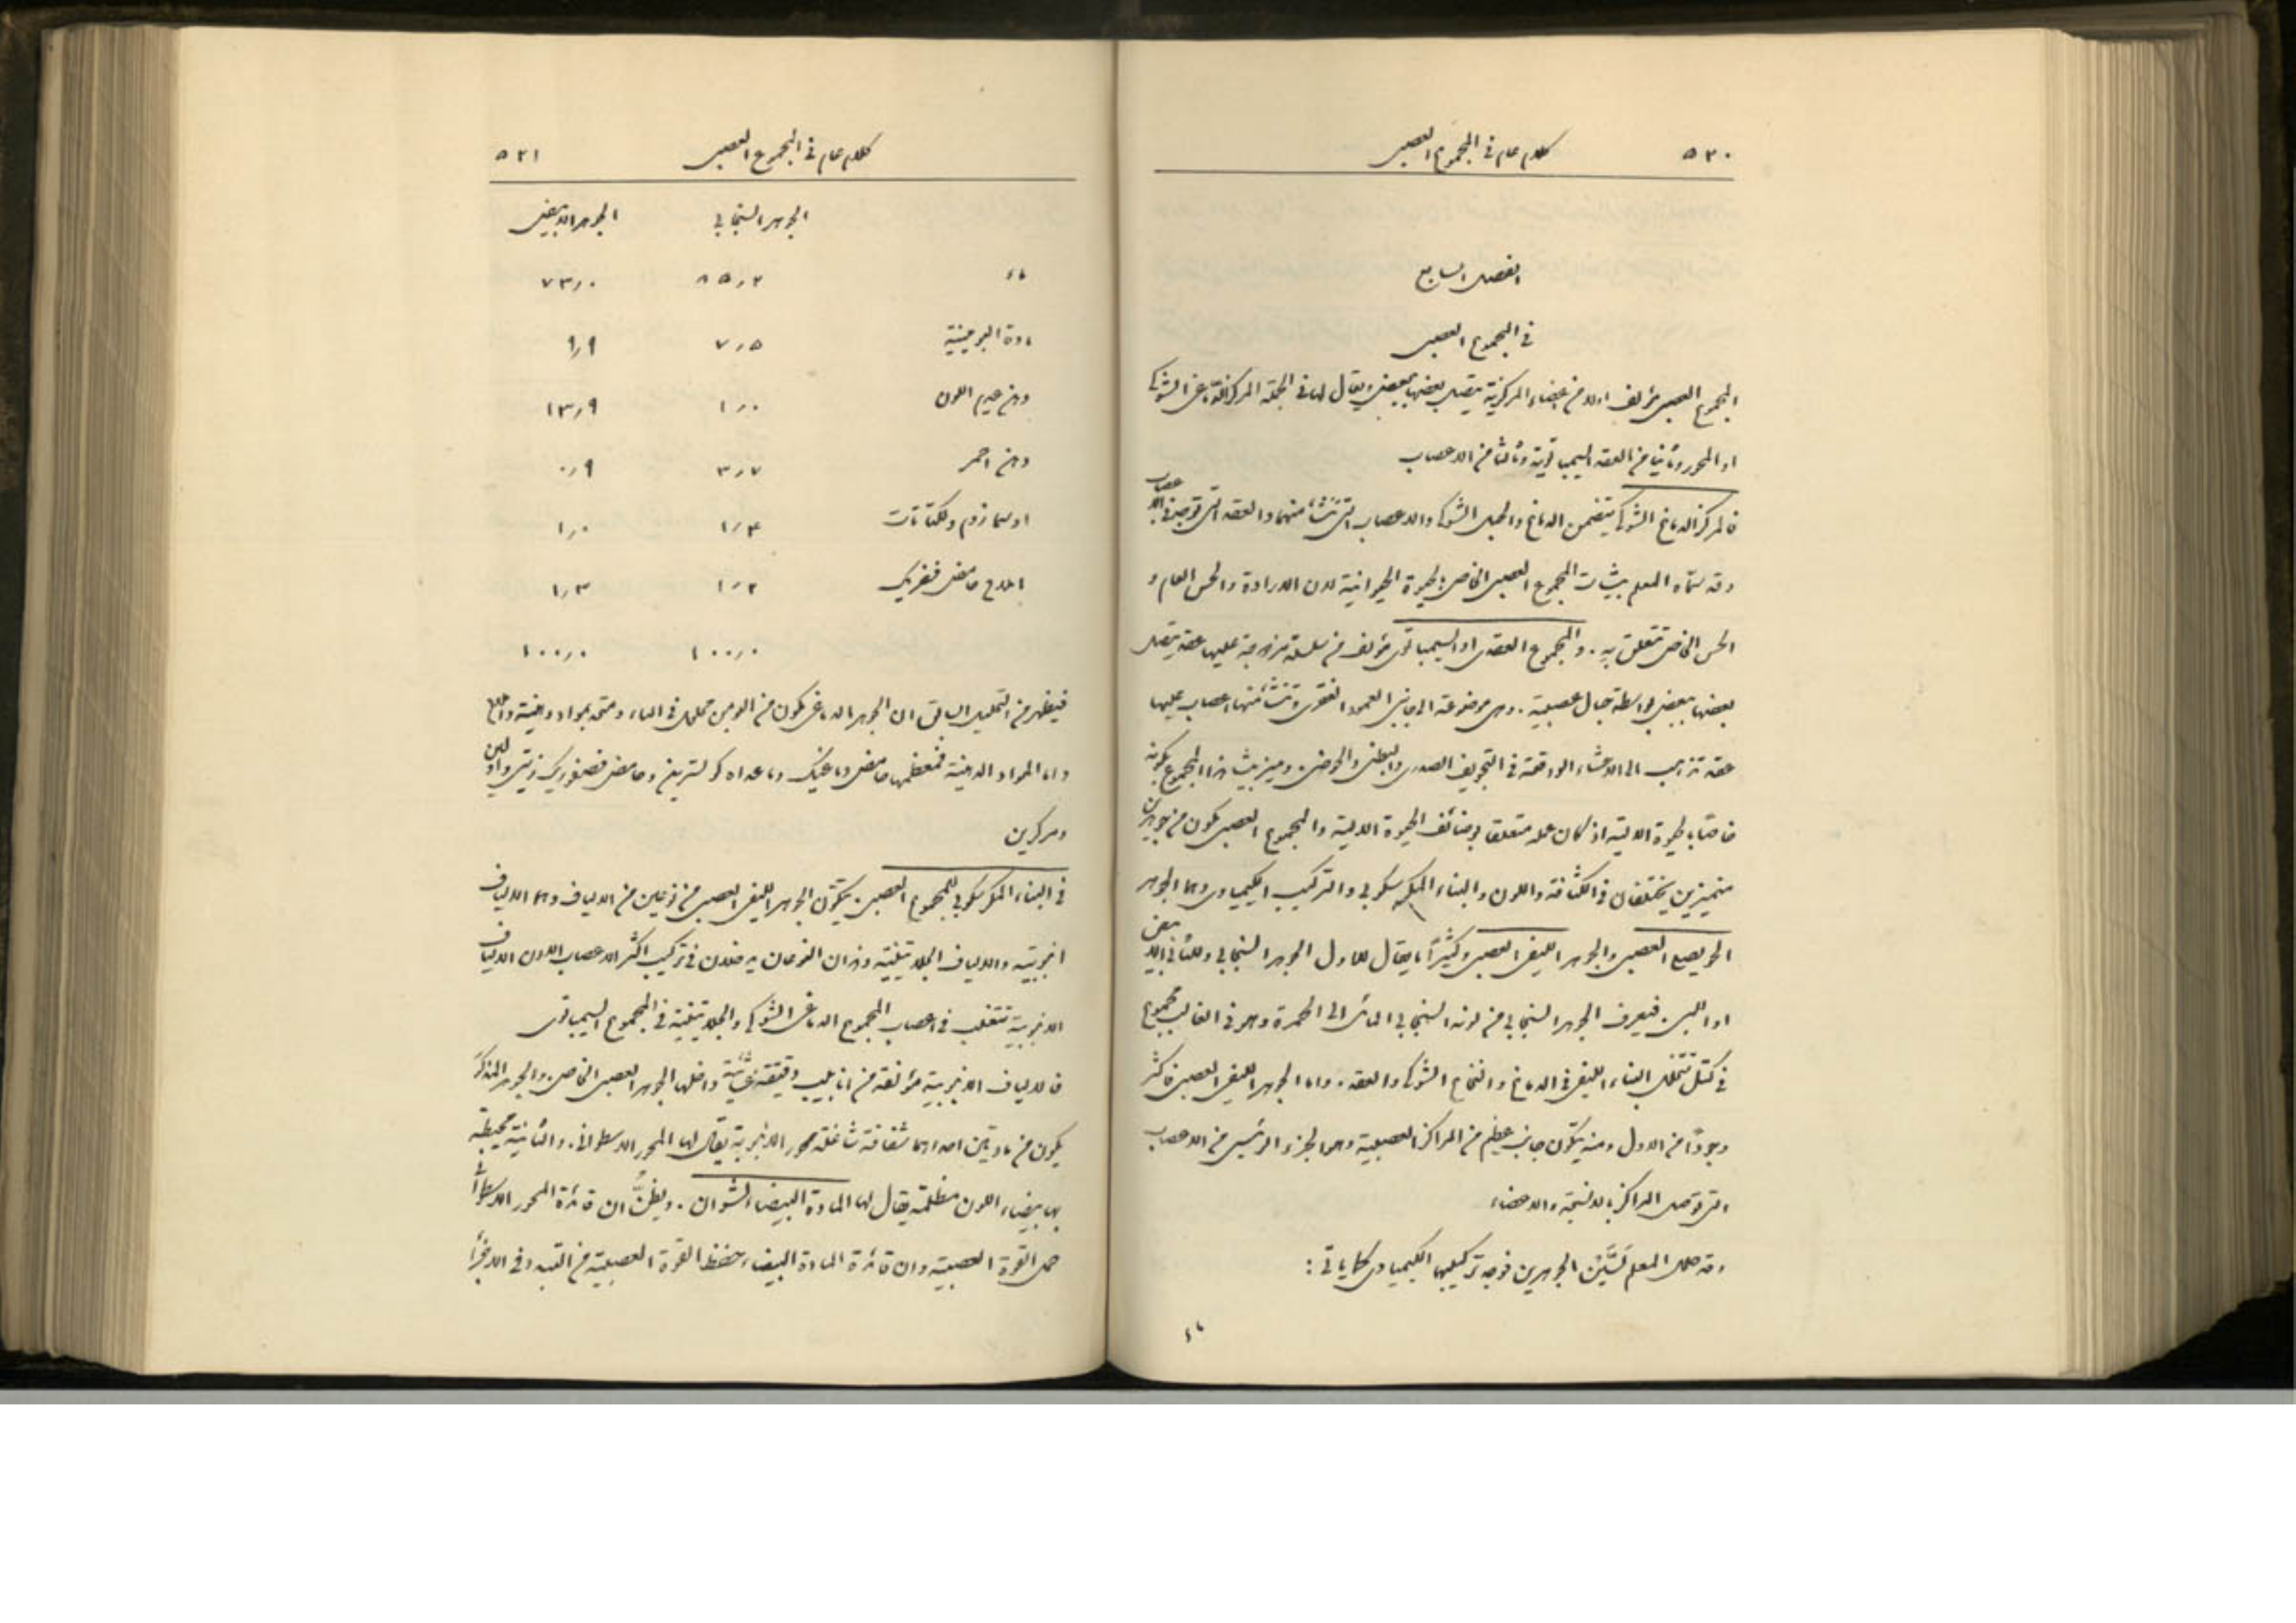 ٥٢٠ كلام عام في المجموع العصبي
الفصل السابع
في المجموع العصبي
المجموع العصبي مؤلف اولا من اعضاء المركزية يتصل بعضها ببعض ويقال لها في الجملة المركز الدماغي الشوكي
او المحور وثانيا من العقد السيمباتوية وثالثا من الاعصاب
فالمركز الدماغي الشوكي يتضمن الدماغ والحبل الشوكي والاعصاب التي تنشأ منهما والعقد التي توجد في الاعصاب
وقد سماه المعلم بيشات المجموع العصبي الخاص بالحيوة الحيوانية لان الارادة والحس العام و
الحس الخاص تتعلق به . والمجموع العقدي او السيمباتوي مؤلف من سلسلة مزدوجة عليها عقد يتصل
بعضها ببعض بواسطة حبال عصبية . وهي موضوعة الى جانبي العمود الفقري وتنشأ منها اعصاب عليها
عقد تذهب الى الاحشاء الواقعة في التجويف الصدري والبطني والحوضي . وميز بيشا هذا المجموع بكونه
خاصا بالحيوة الالية اذ كان عمله متعلقا بوضائف الحيوة الالية والمجموع العصبي يكون من جوهرين
متميزين يختلفان في الكثافة واللون والبناء المكرسكوبي والتركيب الكيمياوي وهما الجوهر
الحويصلي العصبي والجوهر الليفي العصبي وكثيرًا ما يقال للاول الجوهر السنجابي وللثاني الابيض
او اللبي . فيعرف الجوهر السنجابي من لونه السنجابي المائل الى الحمرة وهو في الغالب مجموع
في كتل تتخلل البناء الليفي في الدماغ والنخاع الشوكي والعقد . واما الجوهر الليفي العصبي فاكثر
وجودًا من الاول ومنه يتكون جانب عظيم من المراكز العصبية وهو الجزء الرئيسي من الاعصاب
التي توصل المراكز بالانسجة والاعضاء
وقد حلل المعلم لَسَّيْن الجوهرين فوجد تركيبها الكيمياوي كما ياتي :
ماء
كلام عام في المجموع العصبي ٥٢١
الجوهر السنجابي الجوهر الابيض
ماء ٨٥٫٢ ٧٣٫٠
مادة البومينية ٧٫٥ ٩٫٩
دهن عديم اللون ١٫٠ ١٣٫٩
دهن احمر ٣٫٧ ٠٫٩
اوسمازوم ولكتات ١٫٤ ١٫٠
املاح حامض فصفريك ١٫٢ ١٫٣
١٠٠٫٠ ١٠٠٫٠
فيظهر من التحليل السابق ان الجوهر الدماغي يكون من البومن محلول في الماء ومتحد بمواد دهنية واملاح
واما المواد الدهنية فمعظمها حامض دماغيك وما عداه كولسترين وحامض فصفوريك زيتي واولين
ومركرين
في البناء المكرسكوبي للمجموع العصبي . يتكون الجوهر الليفي العصبي من نوعين من الالياف وهما الالياف
انبوبية والالياف الجلاتينية وهذان النوعان يدخلان في تركيب اكثر الاعصاب الا ان الالياف
الانبوبية تتغلب في اعصاب المجموع الدماغي الشوكي والجلاتينية في المجموع السيمباتوي
فالالياف الانبوبية مؤلفة من انابيب دقيقة غشائية داخلها الجوهر العصبي الخاص . والجوهر المذكور
يكون من مادتين احداهما شفافة شاغلة محور الانبوبة يقال لها المحور الاسطواني . والثانية محيطة
بها بيضاء اللون مظلمة يقال لها المادة البيضاء لشوان . ويظنُّ ان فائدة المحور الاسطواني
حمل القوة العصبية وان فائدة المادة البيضاء حفظ القوة العصبية من التبدد وفي الاخر